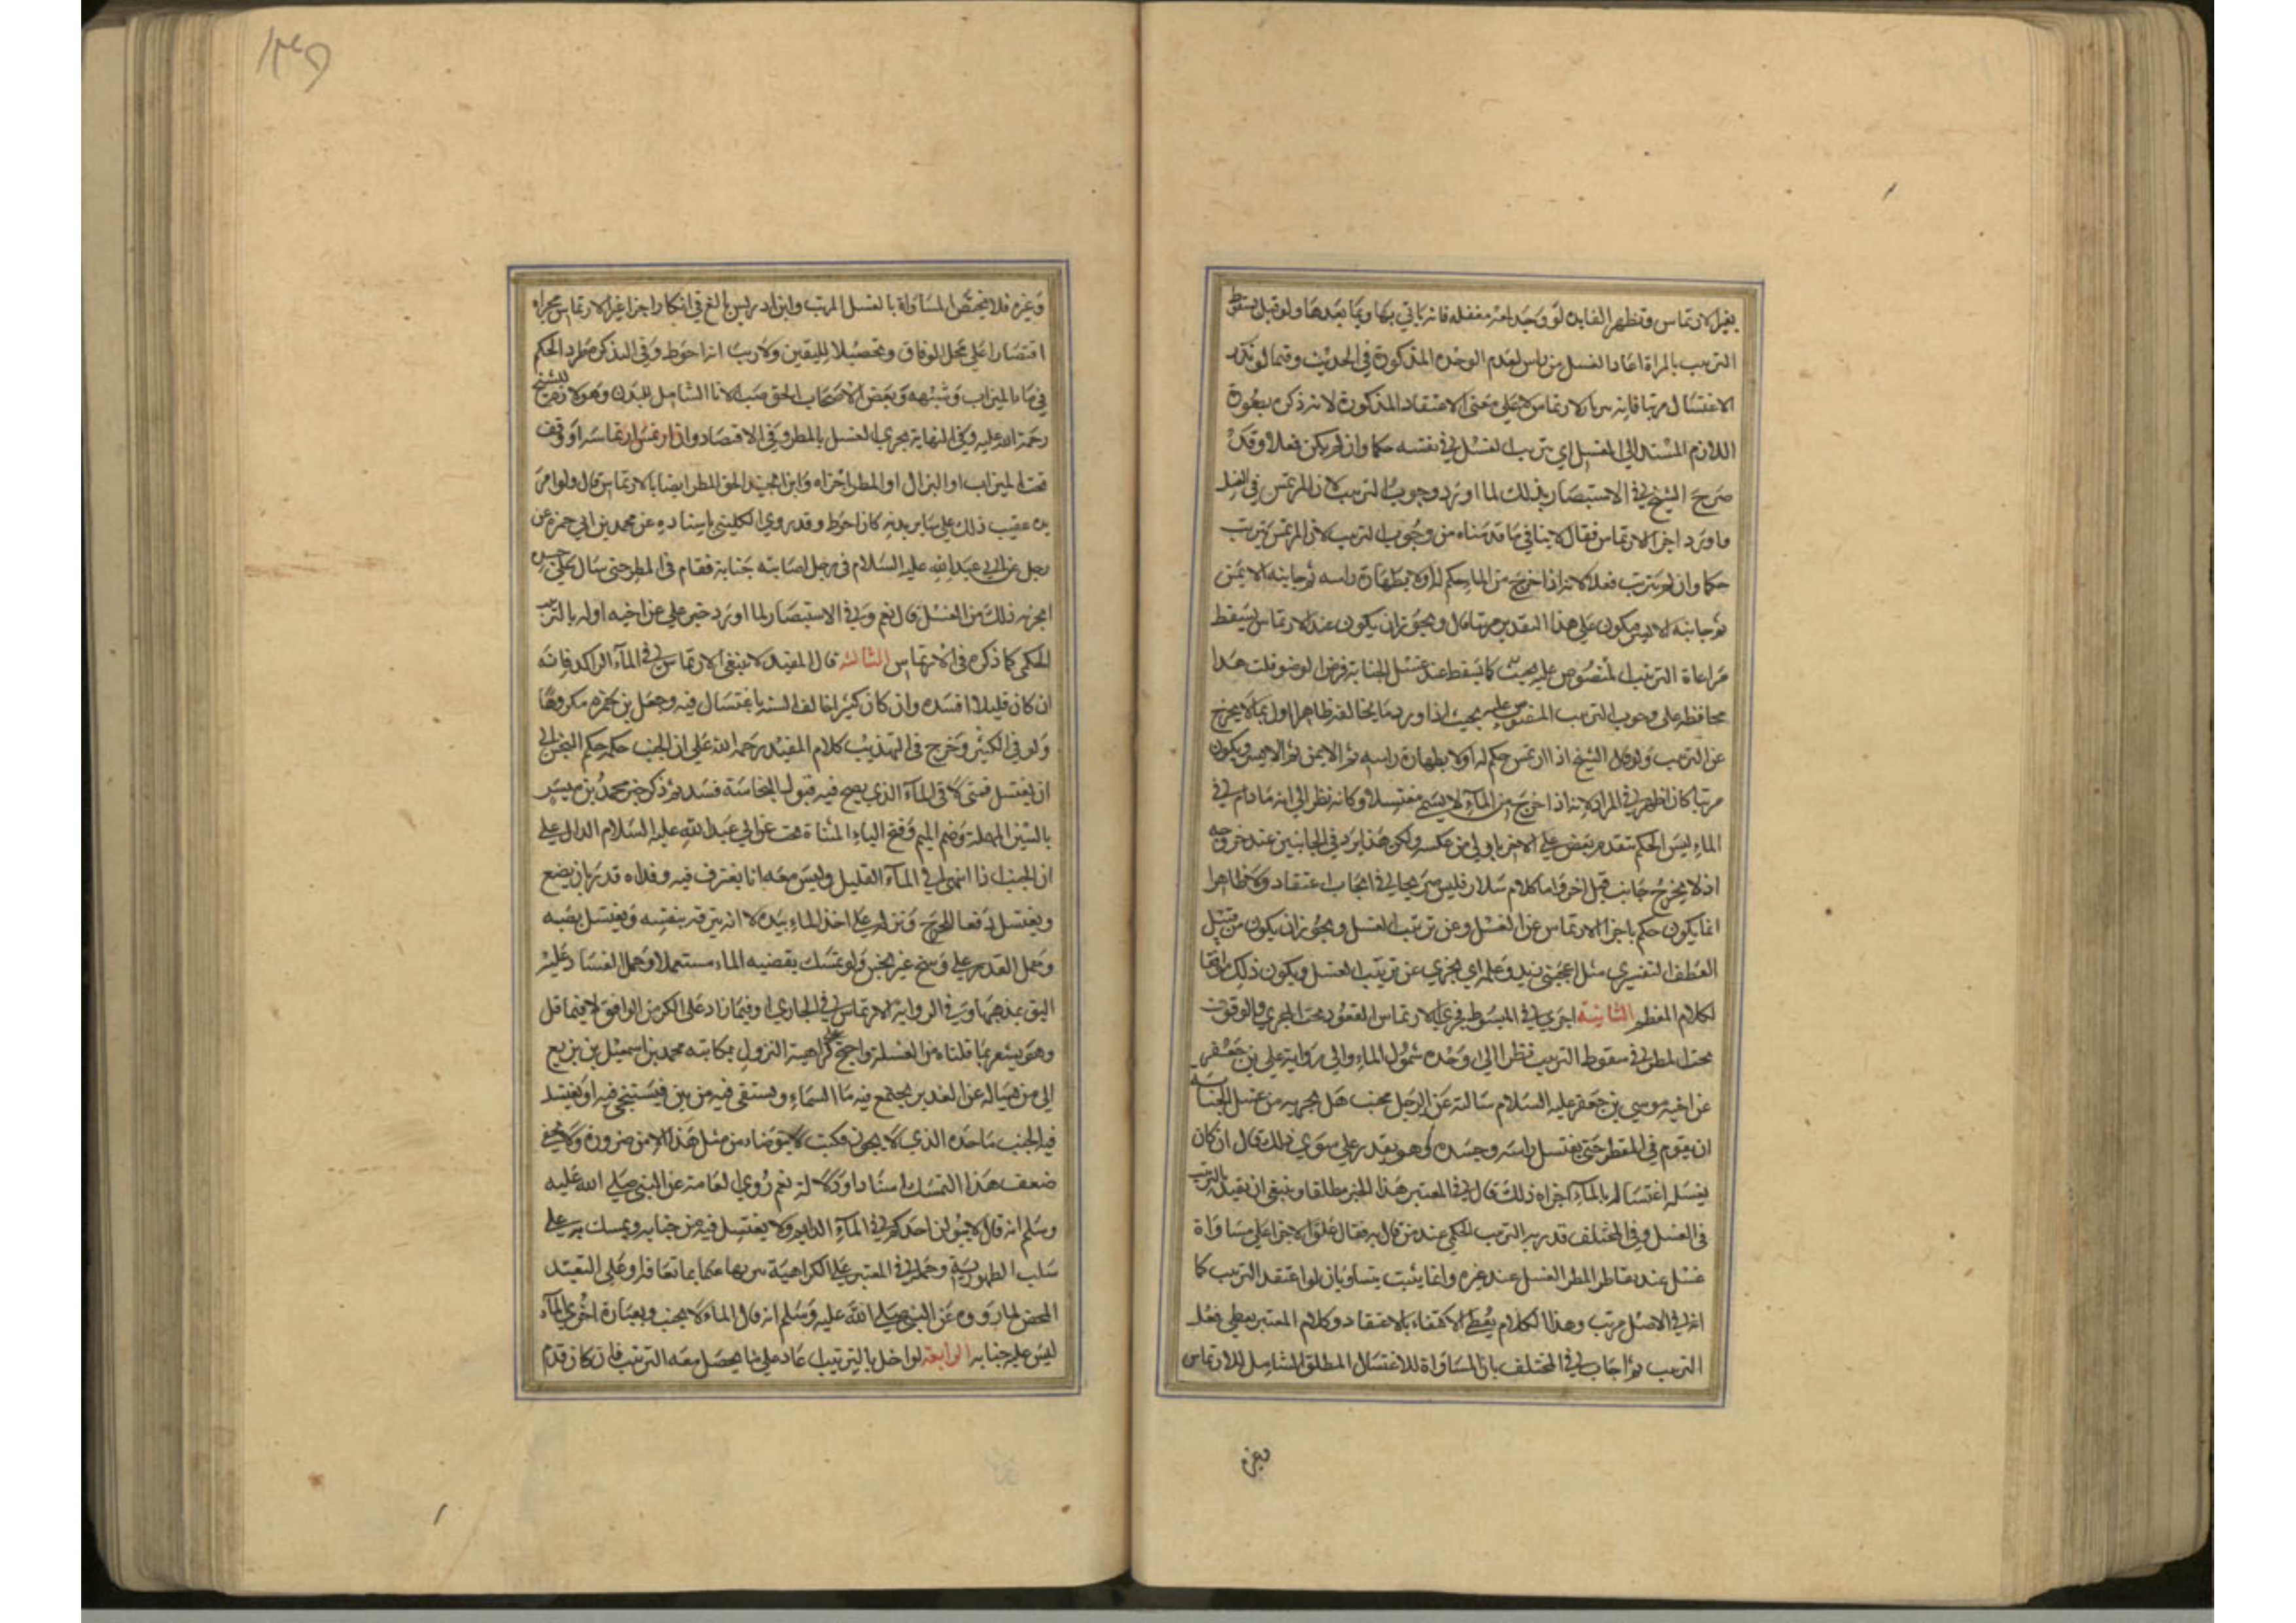 بغير الارتماس وتظهر الفايده لو وجد لمعة مغفله فانه ياتي بها وبما بعدها ولو قيل بسقوط
الترتيب بالمرة اعاد الغسل من راس لعدم الوحده المذكورة في الحديث وفيما لو نذر
الاغتسال مرتبا فانه يبر بالارتماس لا على معنى الاعتقاد المذكورة لانه ذكره بصورة
اللازم المسند الى الغسل اي يترتب الغسل في نفسه حكما وان لم يكن فعلا وقد
صرح الشيخ في الاستبصار بذلك لما اورد وجوب الترتيب في الغسل
واورد اجزا الارتماس فقال لا ينافي ما قدمناه من وجوب الترتيب لان المرتمس يترتب
حكما وان لم يترتب فعلا لانه اذا خرج من الماء حكم له اولا بطهارة راسه ثم جانبه الايمن
ثم جانبه الايسر فيكون على هذا التقدير مرتبا قال ويجوز ان يكون عند الارتماس يسقط
مراعاة الترتيب المنصوص عليه كما يسقط عند غسل الجنابة فرض الوضو قلت هذا
محافظه على وجوب الترتيب المنصوص عليه بحيث اذا ورد ما يخالفه ظاهرا اول بما لا يخرج
عن الترتيب ولو قال الشيخ اذا ارتمس حكم له اولا بطهارة راسه ثم الايمن ثم الايسر ويكون
مرتبا كان اظهر في المراد لانه اذا خرج من الماء لا يسمى مغتسلا وكانه نظر الى انه ما دام في
الماء ليس الحكم بتقدم بعض على الاخر باولى من عكسه ولكن هذا يرد في الجانبين عند خروجه
اذ لا يخرج جانب قبل اخر واما كلام سلار فليس صريحا في ايجاب اعتقاد ولا ظاهرا
انما يكون حكم باجزا الارتماس عن الغسل وعن ترتيب الغسل ويجوز ان يكون من قبيل
العطف التفسيري مثل اعجبني زيد وعلمه اي يجزي عن ترتيب الغسل ويكون ذلك موافقا
لكلام المعظم الثانيه اجرى في المبسوط مجرى الارتماس القعود تحت المجرى والوقوف
تحت المطر في سقوط الترتيب نظرا الى وحده شمول الماء والى رواية علي بن جعفر
عن اخيه موسى بن جعفر عليه السلام سالته عن الرجل يجنب هل يجزيه من غسل الجنابة
ان يقوم في المطر حتى يغتسل راسه وجسده وهو يقدر على سوى ذلك قال ان كان
يغسله اغتساله بالماء اجزاه ذلك قال في المعتبر هذا الخبر مطلقا وينبغي ان يقيد بالترتيب
في الغسل وفي المختلف قدر به الترتيب الحكمي عند من قال به فقال علق الاجزا على مساواة
غسل عند تقاطر المطر الغسل عند غيره وانما يثبت يتساويان لو اعتقد الترتيب كما
انه في الاصل مرتب وهذا الكلام يعطي الاكتفاء بالاعتقاد وكلام المعتبر يعطي فعل
الترتيب ثم اجاب في المختلف بان المساواة للاغتسال المطلق الشامل للارتماس
وغيره
وغيره فلا يختص المساواة بالغسل المرتب وابن ادريس بالغ في انكار اجزا غير الارتماس مجراه
اقتصارا على محل الوفاق وتحصيلا لليقين ولا ريب انه احوط وفي التذكرة طرد الحكم
في ماء الميزاب وشبهه وبعض الاصحاب الحق صب الانا الشامل للبدن وهو لازم للشيخ
رحمة الله عليه وفي النهاية يجري الغسل بالمطر وفي الاقتصاد وان ارتمس ارتماسة او وقف
تحت الميزاب او البزال او المطر اجزاه وابن الجنيد الحق المطر ايضا بالارتماس قال ولو امر
يده عقيب ذلك على ساير بدنه كان احوط وقد روى الكليني باسناده عن محمد بن ابي حمزه عن
رجل عن ابي عبد الله عليه السلام في رجل اصابته جنابة فقام في المطر حتى سال على جسده
ايجزيه ذلك من الغسل قال نعم وفي الاستبصار لما اورد خبر علي عن اخيه اوله بالترتيب
الحكمي كما ذكره في الارتماس الثالثه قال المفيد لا ينبغي الارتماس في الماء الراكد فانه
ان كان قليلا افسده وان كان كثيرا خالف السنه بالاغتسال فيه وجعل بن حمزه مكروها
ولو في الكثير وخرج في التهذيب كلام المفيد رحمه الله على ان الجنب حكمه حكم النجس الى
ان يغتسل فمتى لاقى الماء الذي يصح فيه قبول النجاسة فسد ثم ذكر خبر محمد بن ميسر
بالسين المهملة وضم الميم وفتح الياء المثناة تحت عن ابي عبد الله عليه السلام الدال على
ان الجنب اذا انتهى الى الماء القليل وليس معه انا يغترف فيه ويداه قذرتان يضع
ويغتسل دفعا للحرج ونزله على اخذ الماء بيده لا انه ينزله بنفسه ويغتسل بصبه
وحمل القذر على وسخ غير نجس ولو تمسك بقضيه الماء مستعملا وحمل الفساد عليه
اليق بمذهبهما وفي الرواية الارتماس في الجاري او فيما زاد على الكر من الواقف لا فيما قل
وهو يشعر بما قلناه من الغسلة واحتج على كراهية النزول بمكاتبه محمد بن اسمعيل بن بزيع
الى من يساله عن الغدير يجتمع فيه ماء السماء ويستقى فيه من بئر فيستنجي فيه او يغتسل
فيه الجنب ما حده الذي لا يجوز فكتب لا يتوضاء من مثل هذا الا من ضرورة ولا يخفى
ضعف هذا التمسك اسنادا ودلالة نعم روى العامة عن النبي صلى الله عليه
وسلم انه قال لا يبولن احدكم في الماء الدايم ولا يغتسل فيه من جنابه ويمسك به على
سلب الطهورية وحمله في المعتبر على الكراهية
المحض لما رووه عن النبي صلى الله عليه وسلم انه قال الماء لا يجنب وبعبارة اخرى الماء
ليس عليه جنابه الرابعة لو اخل بالترتيب عاد على ما يحصل معه الترتيب فان كان قدم